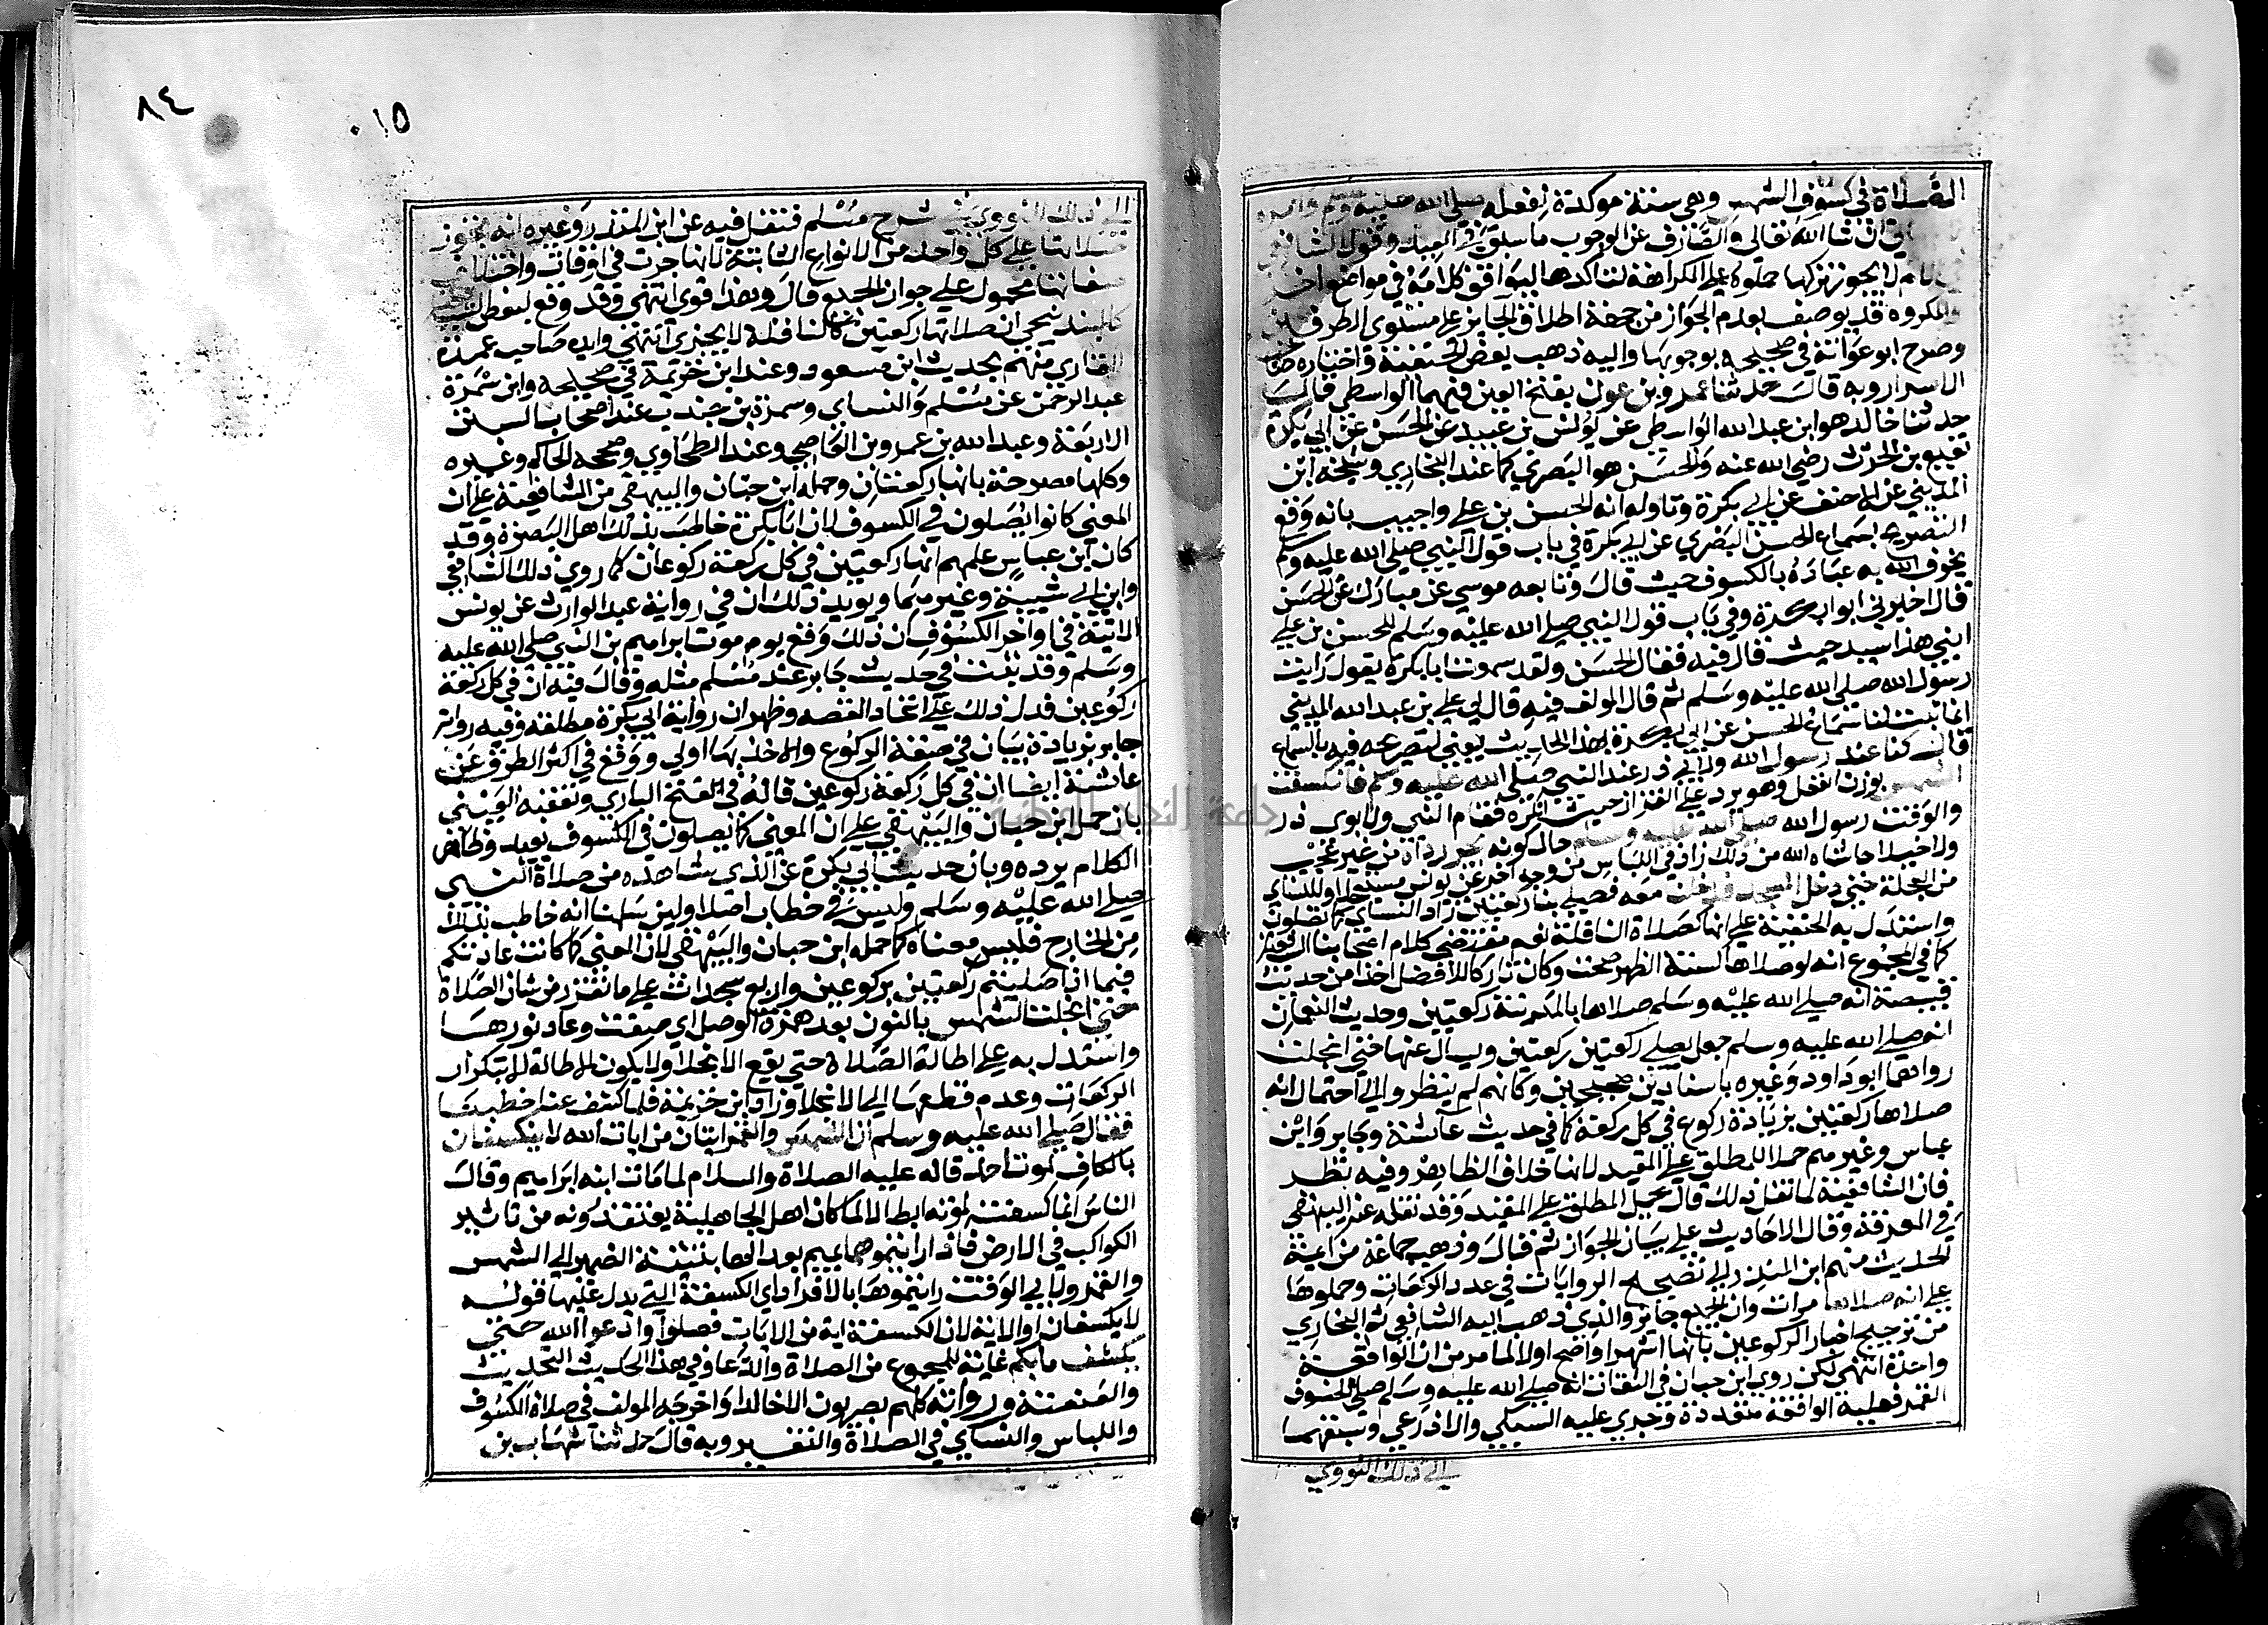 الصلاة في كسوف الشمس وهي سنة موكدة لفعله صلى الله عليه وسلم وامره
ان شا الله تعالى والصارف عن الوجوب ما سبق في العيد وقول الشافعي
لا يجوز تركها حملوه على الكراهة لتاكدها ليوافق كلامه في مواضع اخر
والمكروه قد يوصف بعدم الجواز من جهة اطلاق الجايز على مستوى الطرفين
وصرح ابو عوانة في صحيحه بوجوبها واليه ذهب بعض الحنفية واختاره صاحب
الاسرار وبه قال حدثنا عمرو بن عون بفتح العين فيهما الواسطي قال
حدثنا خالد هو ابن عبد الله الواسطي عن يونس بن عبيد عن الحسن عن ابي بكرة
نفيع بن الحرث رضي الله عنه والحسن هو البصري كما عند البخاري وشيخه ابن
المديني عن الاحنف عن ابي بكرة وتاوله انه الحسن بن علي واجيب بانه وقع
التصريح بسماع الحسن البصري عن ابي بكرة في باب قول النبي صلى الله عليه وسلم
يخوف الله به عباده بالكسوف حيث قال وتابعه موسى عن مبارك عن الحسن
قال اخبرني ابو بكرة وفي باب قول النبي صلى الله عليه وسلم للحسن بن علي
ابني هذا سيد حيث قال فيه فقال الحسن ولقد سمعت ابا بكرة يقول رايت
رسول الله صلى الله عليه وسلم ثم قال المولف فيه قال لي علي بن عبد الله المديني
انما ثبت لنا سماع الحسن عن ابي بكرة بهذا الحديث يعني لتصريحه فيه بالسماع
قال كنا عند رسول الله ولابي ذر عند النبي صلى الله عليه وسلم فانكسفت
الشمس بوزن انفعل وهو يرد على القزاز حيث انكره فقام النبي ولابوي ذر
والوقت رسول الله صلى الله عليه وسلم حال كونه يجر رداه من غير عجب
ولا خيلا حاشاه الله من ذلك زاد في اللباس من وجه اخر عن يونس مستعجلا وللنساي
من العجلة حتى دخل المسجد فدخلنا معه فصلى بنا ركعتين زاد النساي كما تصلون
واستدل به الحنفية على انها كصلاة النافلة نعم مقتضى كلام اصحابنا الشافعية
كما في المجموع انه لو صلاها كسنة الظهر صحت وكان تاركا للافضل اخذا من حديث
قبيصة انه صلى الله عليه وسلم صلاها بالمدينة ركعتين وحديث النعمان
انه صلى الله عليه وسلم جعل يصلي ركعتين ركعتين ويسال عنها حتى انجلت
رواهما ابو داود وغيره باسنادين صحيحين وكانهم لم ينظروا الى احتمال انه
صلاها ركعتين بزيادة ركوع في كل ركعة كما في حديث عائشة وجابر وابن
عباس وغيرهم حملا للمطلق على المقيد لانها خلاف الظاهر وفيه نظر
فان الشافعية لما نقل ذلك قال يحمل المطلق على المقيد وقد نقله عنه البيهقي
في المعرفة وقال الاحاديث على بيان الجواز ثم قال وذهب جماعة من ايمة
الحديث منهم ابن المنذر الى تصحيح الروايات في عدد الركعات وحملوها
على انه صلاها مرات وان الجميع جائز والذي ذهب اليه الشافعي ثم البخاري
من ترجيح اخبار الركوعين بانها اشهر واصح اولى لما مر من ان الواقعة
واحدة انتهى لكن روى ابن حبان في الثقات انه صلى الله عليه وسلم صلى لخسوف
القمر فعليه الواقعة متعددة وجرى عليه السبكي والاذرعي وسبقهما
الى ذلك النووي
٨٤
٠١٥
الى ذلك النووي في شرح مسلم فنقل فيه عن ابن المنذر وغيره انه يجوز
صلاتها على كل واحد من الانواع الثابتة لانها جرت في اوقات واختلاف
صفاتها محمول على جواز الجميع وقال وهذا قوي انتهى وقد وقع لبعض
كالبندنيجي ان صلاتها ركعتين كالنافلة لا يجزي انتهى وايده صاحب عمدة
القاري منهم بحديث ابن مسعود وعند ابن خزيمة في صحيحه وابن سمرة
عبد الرحمن عن مسلم والنساي وسمرة بن جندب عند اصحاب السنن
الاربعة وعبد الله بن عمرو بن العاصي وعند الطحاوي وصححه الحاكم وغيره
وكلها مصرحة بانها ركعتان وحمله ابن حبان والبيهقي من الشافعية على ان
المعنى كانوا يصلون في الكسوف لان ابا بكرة خاطب بذلك اهل البصرة وقد
كان ابن عباس علمهم انها ركعتين في كل ركعة ركوعان كما روى ذلك الشافعي
وابن ابي شيبة وغيرهما ويويد ذلك ان في رواية عبد الوارث عن يونس
الاتية في اواخر الكسوف ان ذلك وقع يوم موت ابراهيم بن النبي صلى الله عليه
وسلم وقد ثبت في حديث جابر عند مسلم مثله وقال فيه ان في كل ركعة
ركوعين فدل ذلك على اتحاد القصه وظهر ان رواية ابي بكرة مطلقه وفيه رواية
جابر بزيادة بيان في صفة الركوع والاخذ بها اولى ووقع في اكثر الطرق عن
عائشة ايضا ان في كل ركعة ركوعين قاله في الفتح الباري وتعقبه العيني
بان حمل ابن حبان والبيهقي على ان المعنى كما يصلون في الكسوف بعيد وظاهر
الكلام يرده وبان حديث ابي بكرة عن الذي شاهده من صلاة النبي
صلى الله عليه وسلم وليس في خطاب اصلا ولين سلمنا انه خاطب بذلك
من الخارج فليس معناه كما حمله ابن حبان والبيهقي لان المعنى كما كانت عادتكم
فيما اذا صليتم ركعتين بركوعين واربع سجدات على ما تقرر من شان الصلاة
حتى انجلت الشمس بالنون بعد همزة الوصل اي صفت وعاد نورها
واستدل به على اطالة الصلاة حتى يقع الانجلا ولا يكون الاطالة الا بتكرار
الركعات وعدم قطعها الى الانجلا وزاد ابن خزيمة فلما كشف عنا خطبنا
فقال صلى الله عليه وسلم ان الشمس والقمر ايتان من ايات الله لا ينكسفان
بالكاف لموت احد قاله عليه الصلاة والسلام لما مات ابنه ابراهيم وقال
الناس انما كسفت لموته ابطالا لما كان اهل الجاهلية يعتقدونه من تاثير
الكواكب في الارض فاذا رايتموهما بميم بعد الها بتثنية الضمير الى الشمس
والقمر ولابي الوقت رايتموها بالافراد اي الكسفة التي يدل عليها قوله
لا يكسفان او الاية لان الكسفة اية من الايات فصلوا وادعوا الله حتى
يكشف ما بكم غاية للمجموع من الصلاة والدعا وفي هذا الحديث التحديث
والعنعنة ورواته كلهم بصريون الا خالد واخرجه المولف في صلاة الكسوف
واللباس والنساي في الصلاة والتفسير وبه قال حدثنا شهاب بن
جامعة النجاح الوطنية